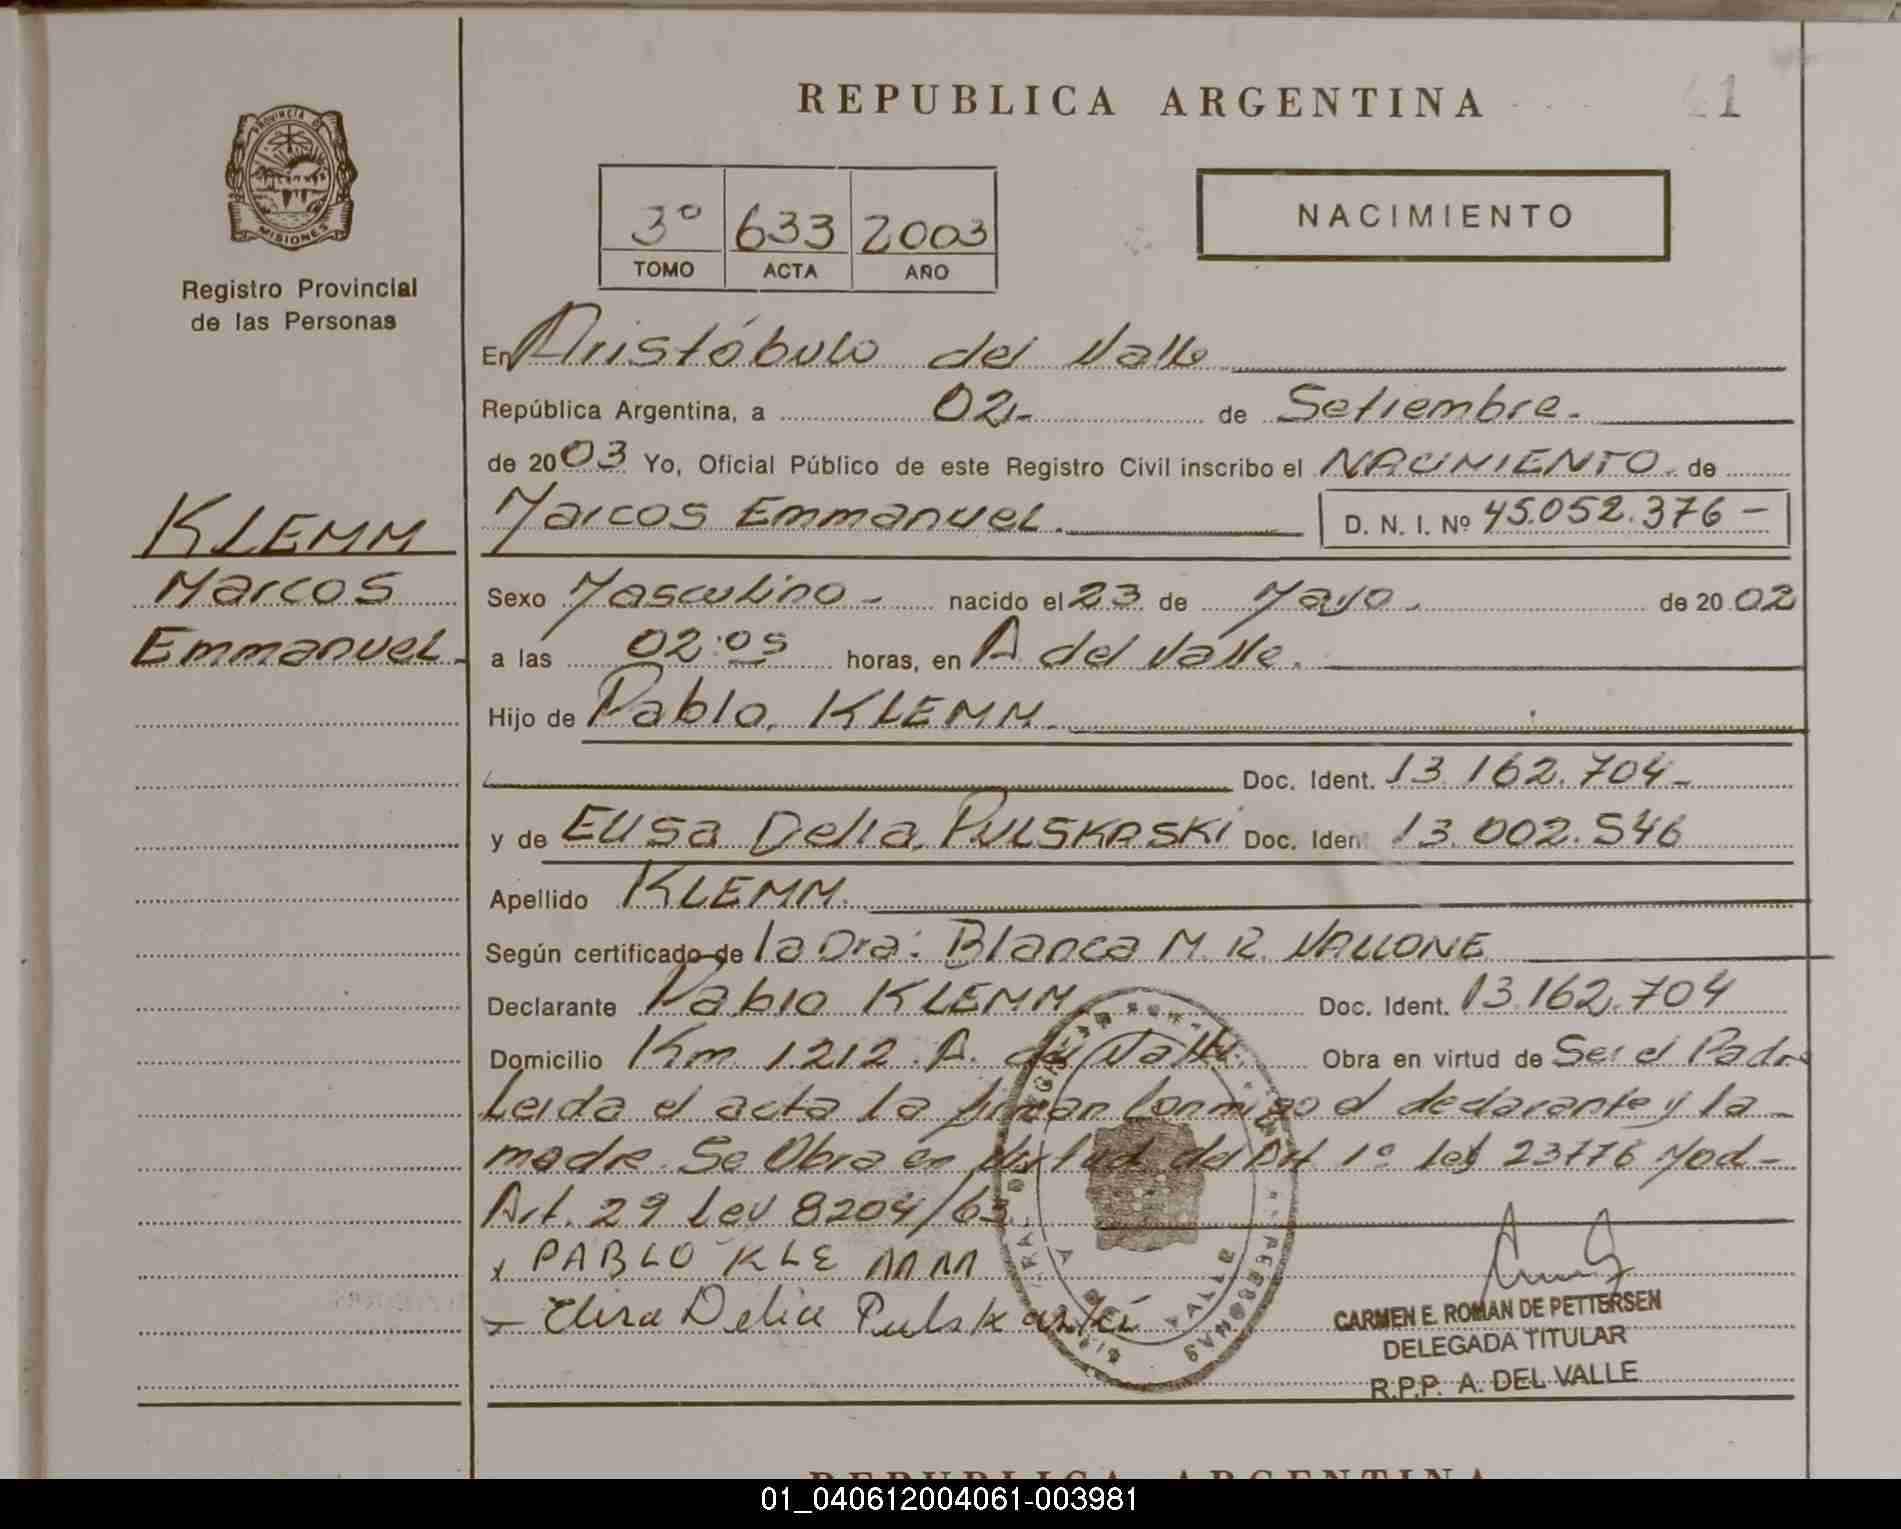 REPUBLICA ARGENTINA
41
PROVINCIA DE
MISIONES
Registro Provincial
de las Personas
3º 633 2003
TOMO ACTA AÑO
NACIMIENTO
En Aristóbulo del Valle
República Argentina, a 02.- de Setiembre.
de 2003 Yo, Oficial Público de este Registro Civil inscribo el NACIMIENTO de
Marcos Emmanuel. D. N. I. Nº 45.052.376 -
KLEMM
Marcos
Emmanuel.
Sexo Masculino - nacido el 23 de Mayo. de 2002
a las 02:05 horas, en A del Valle.
Hijo de Pablo, KLEMM.
Doc. Ident. 13.162.704-
y de Elisa Delia, PULSKASKI Doc. Iden 13.002.546
Apellido KLEMM.
Según certificado de la Dra: Blanca M. R. VALLONE
Declarante Pablo KLEMM Doc. Ident. 13.162.704
Domicilio Km 1.212. A. del Valle. Obra en virtud de Ser el Padre
Leida el acta la firman Conmigo el declarante y la
madre. Se Obra en virtud del Art 1º ley 23776 Mod-
Art. 29 Ley 8204/63
x PABLO KLEMM
- Elisa Delia Pulskaski
CARMEN E. ROMAN DE PETTERSEN
DELEGADA TITULAR
R.P.P. A. DEL VALLE
REPUBLICA ARGENTINA
01_040612004061-003981